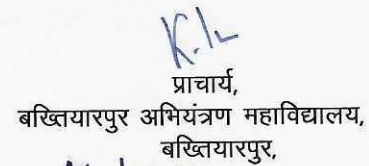 प्राचार्य,
बख्तियारपुर अभियंत्रण महाविद्यालय,
बख्तियारपुर,